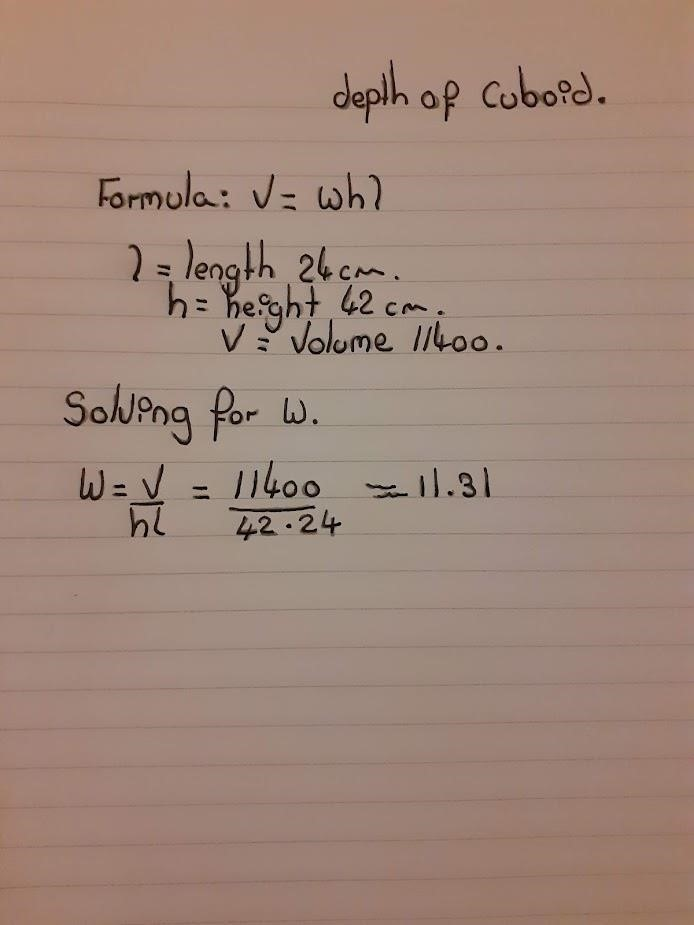 depth of Cuboid.
Formula: V = whl
l = length 24cm.
h = height 42 cm.
V = Volume 11400.
Solving for W.
W = V/hl = 11400/42·24 ≈ 11.31